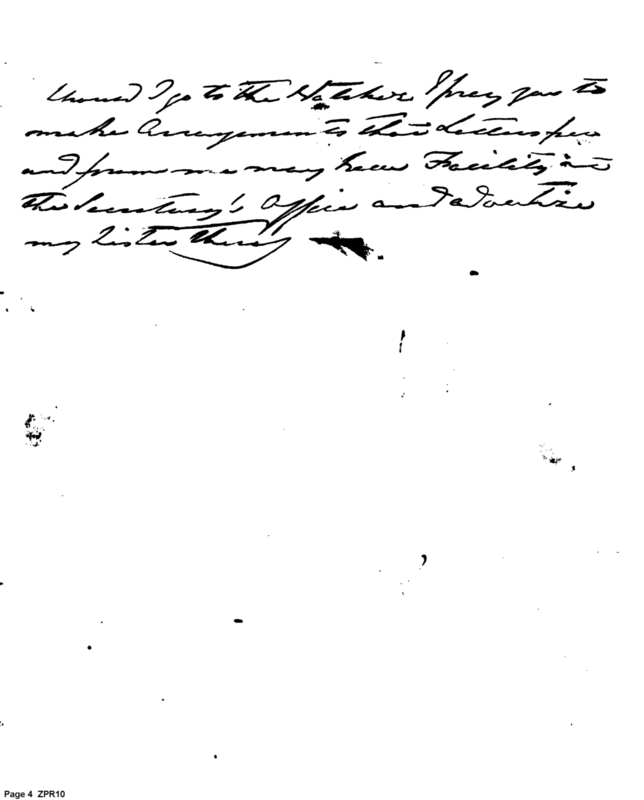 Should I go to the Natchez I pray you to
make Arrangements that Letters for
and from me may have Facility in
the Secretary's Office and advertize
my Sister
Page 4 ZPR10